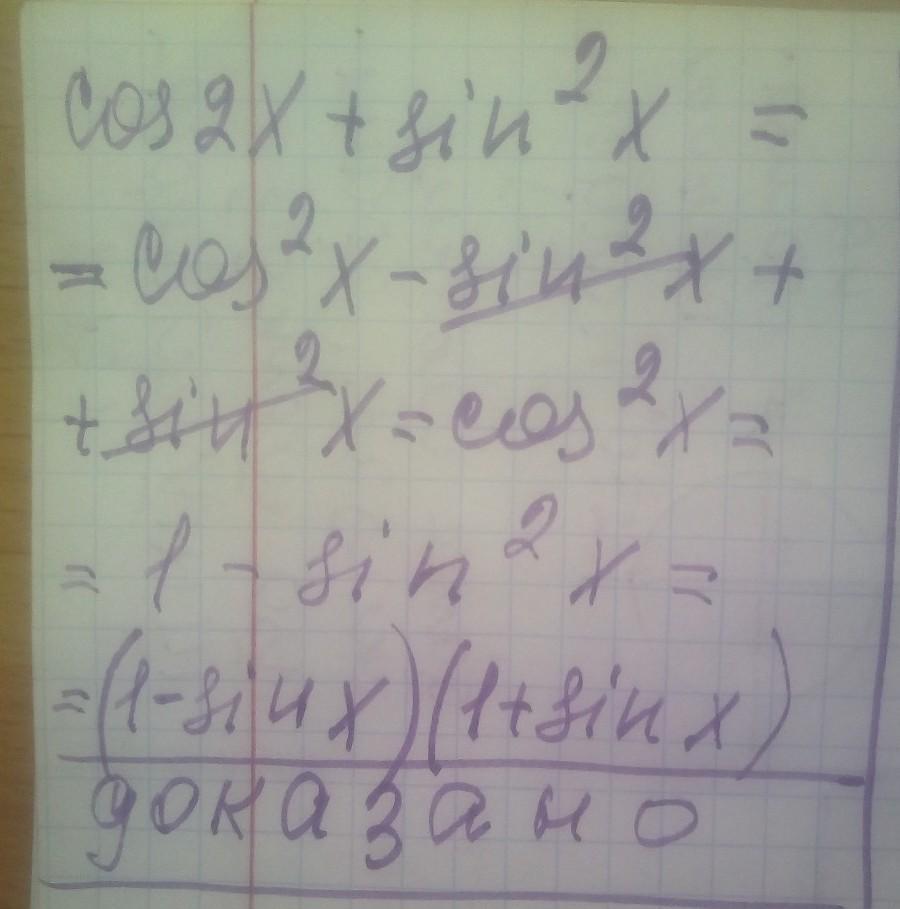 cos2x + sin²x =
= cos²x - sin²x +
+ sin²x = cos²x =
= 1 - sin²x =
= (1-sinx)(1+sinx)
доказано